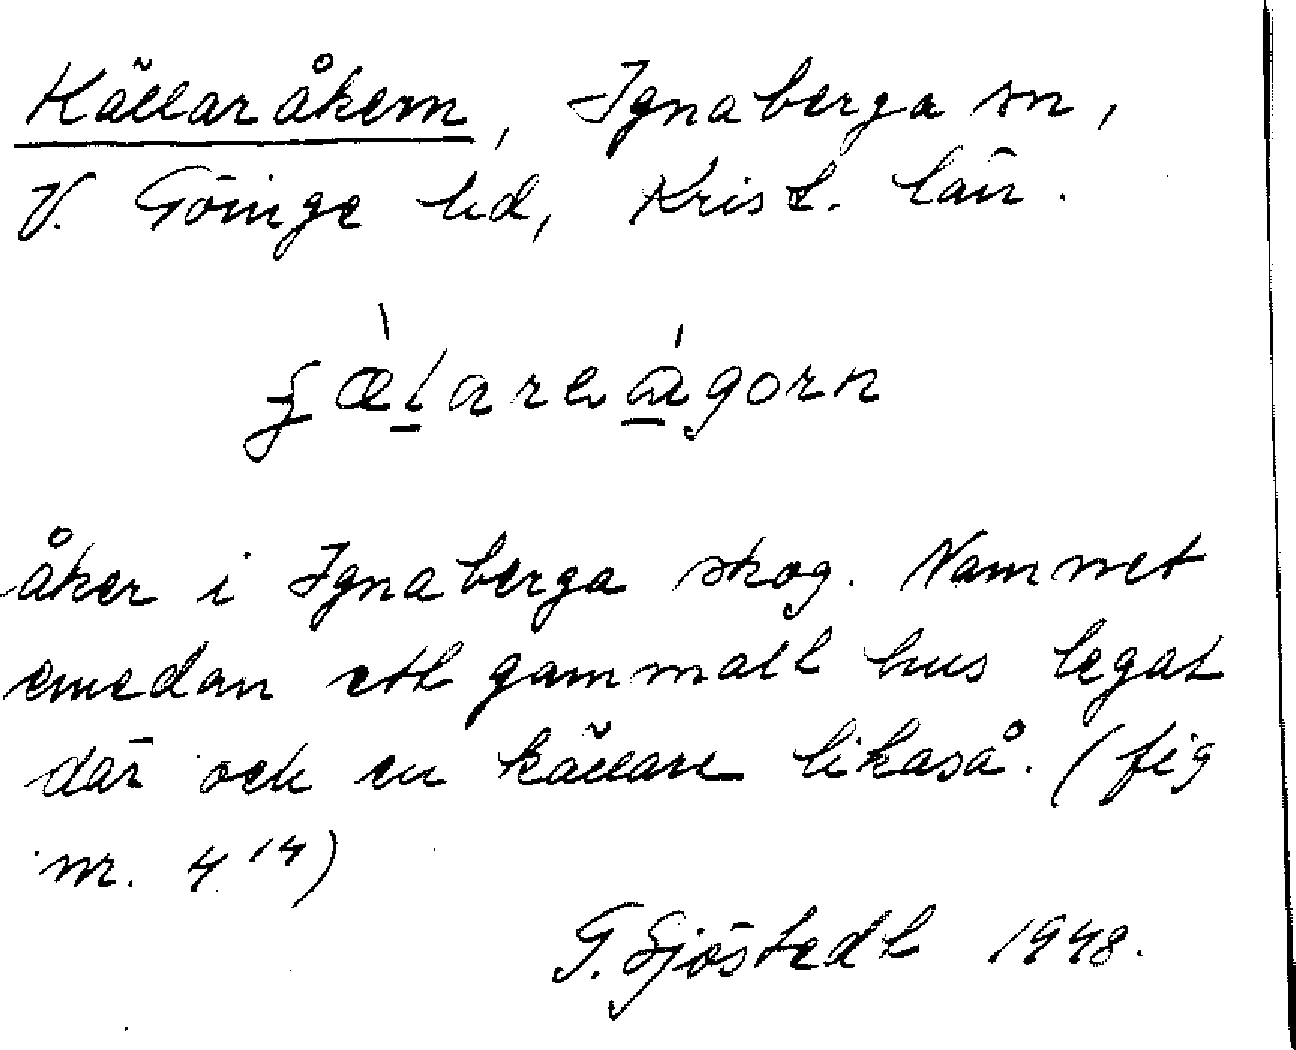 Källaråkern, Ignaberga sn,
V. Göinge hd, Krist. län.
åker i Ignaberga skog. Namnet
emedan ett gammalt hus legat
där och en källare likaså. (fig
nr. 4 14)
G. Sjöstedt 1948.